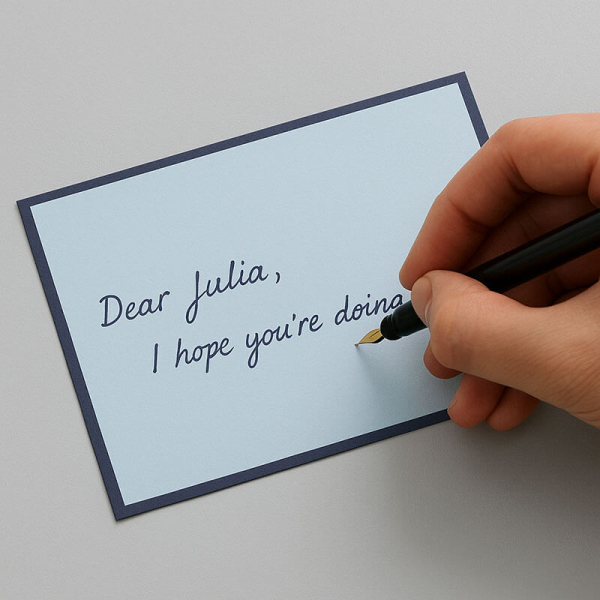 Dear Julia,
I hope you're doing